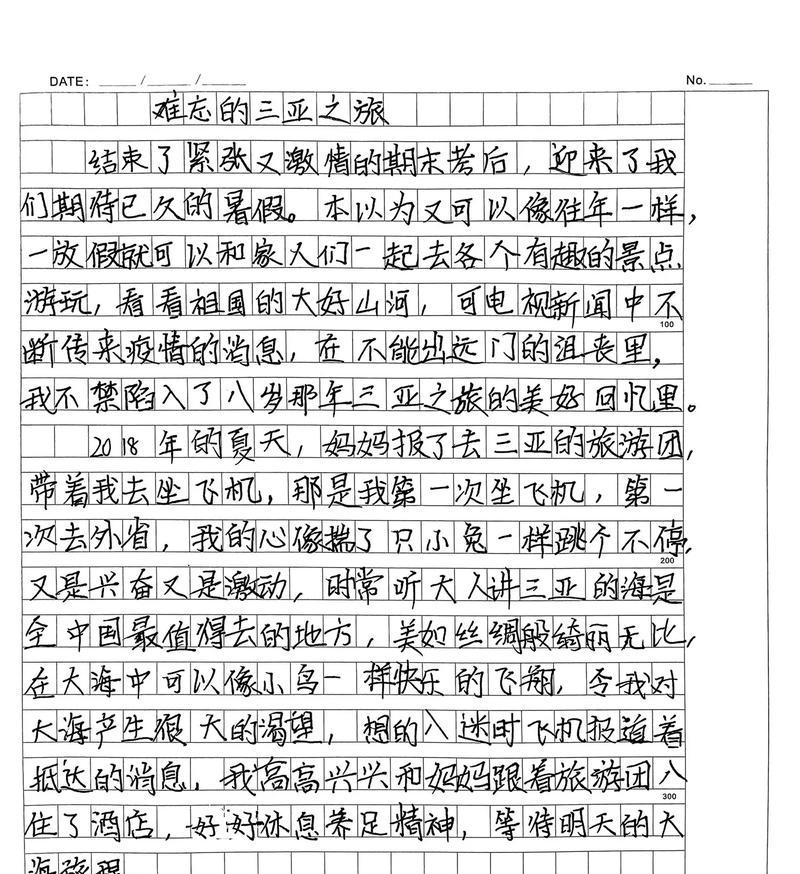 DATE: ____/____/____ No.____
难忘的三亚之旅
结束了紧张又激情的期末考后，迎来了我
们期待已久的暑假。本以为又可以像往年一样，
一放假就可以和家人们一起去各个有趣的景点
游玩，看看祖国的大好山河，可电视新闻中不
100
断传来疫情的消息，在不能出远门的沮丧里，
我不禁陷入了八岁那年三亚之旅的美好回忆里。
2018年的夏天，妈妈报了去三亚的旅游团，
带着我去坐飞机，那是我第一次坐飞机，第一
次去外省，我的心像揣了只小兔一样跳个不停，
200
又是兴奋又是激动，时常听大人讲三亚的海是
全中国最值得去的地方，美如丝绸般绮丽无比，
在大海中可以像小鸟一样快乐的飞翔，令我对
大海产生很大的渴望，想的入迷时飞机报道着
抵达的消息，我高高兴兴和妈妈跟着旅游团入
300
住了酒店，好好休息养足精神，等待明天的大
海旅程